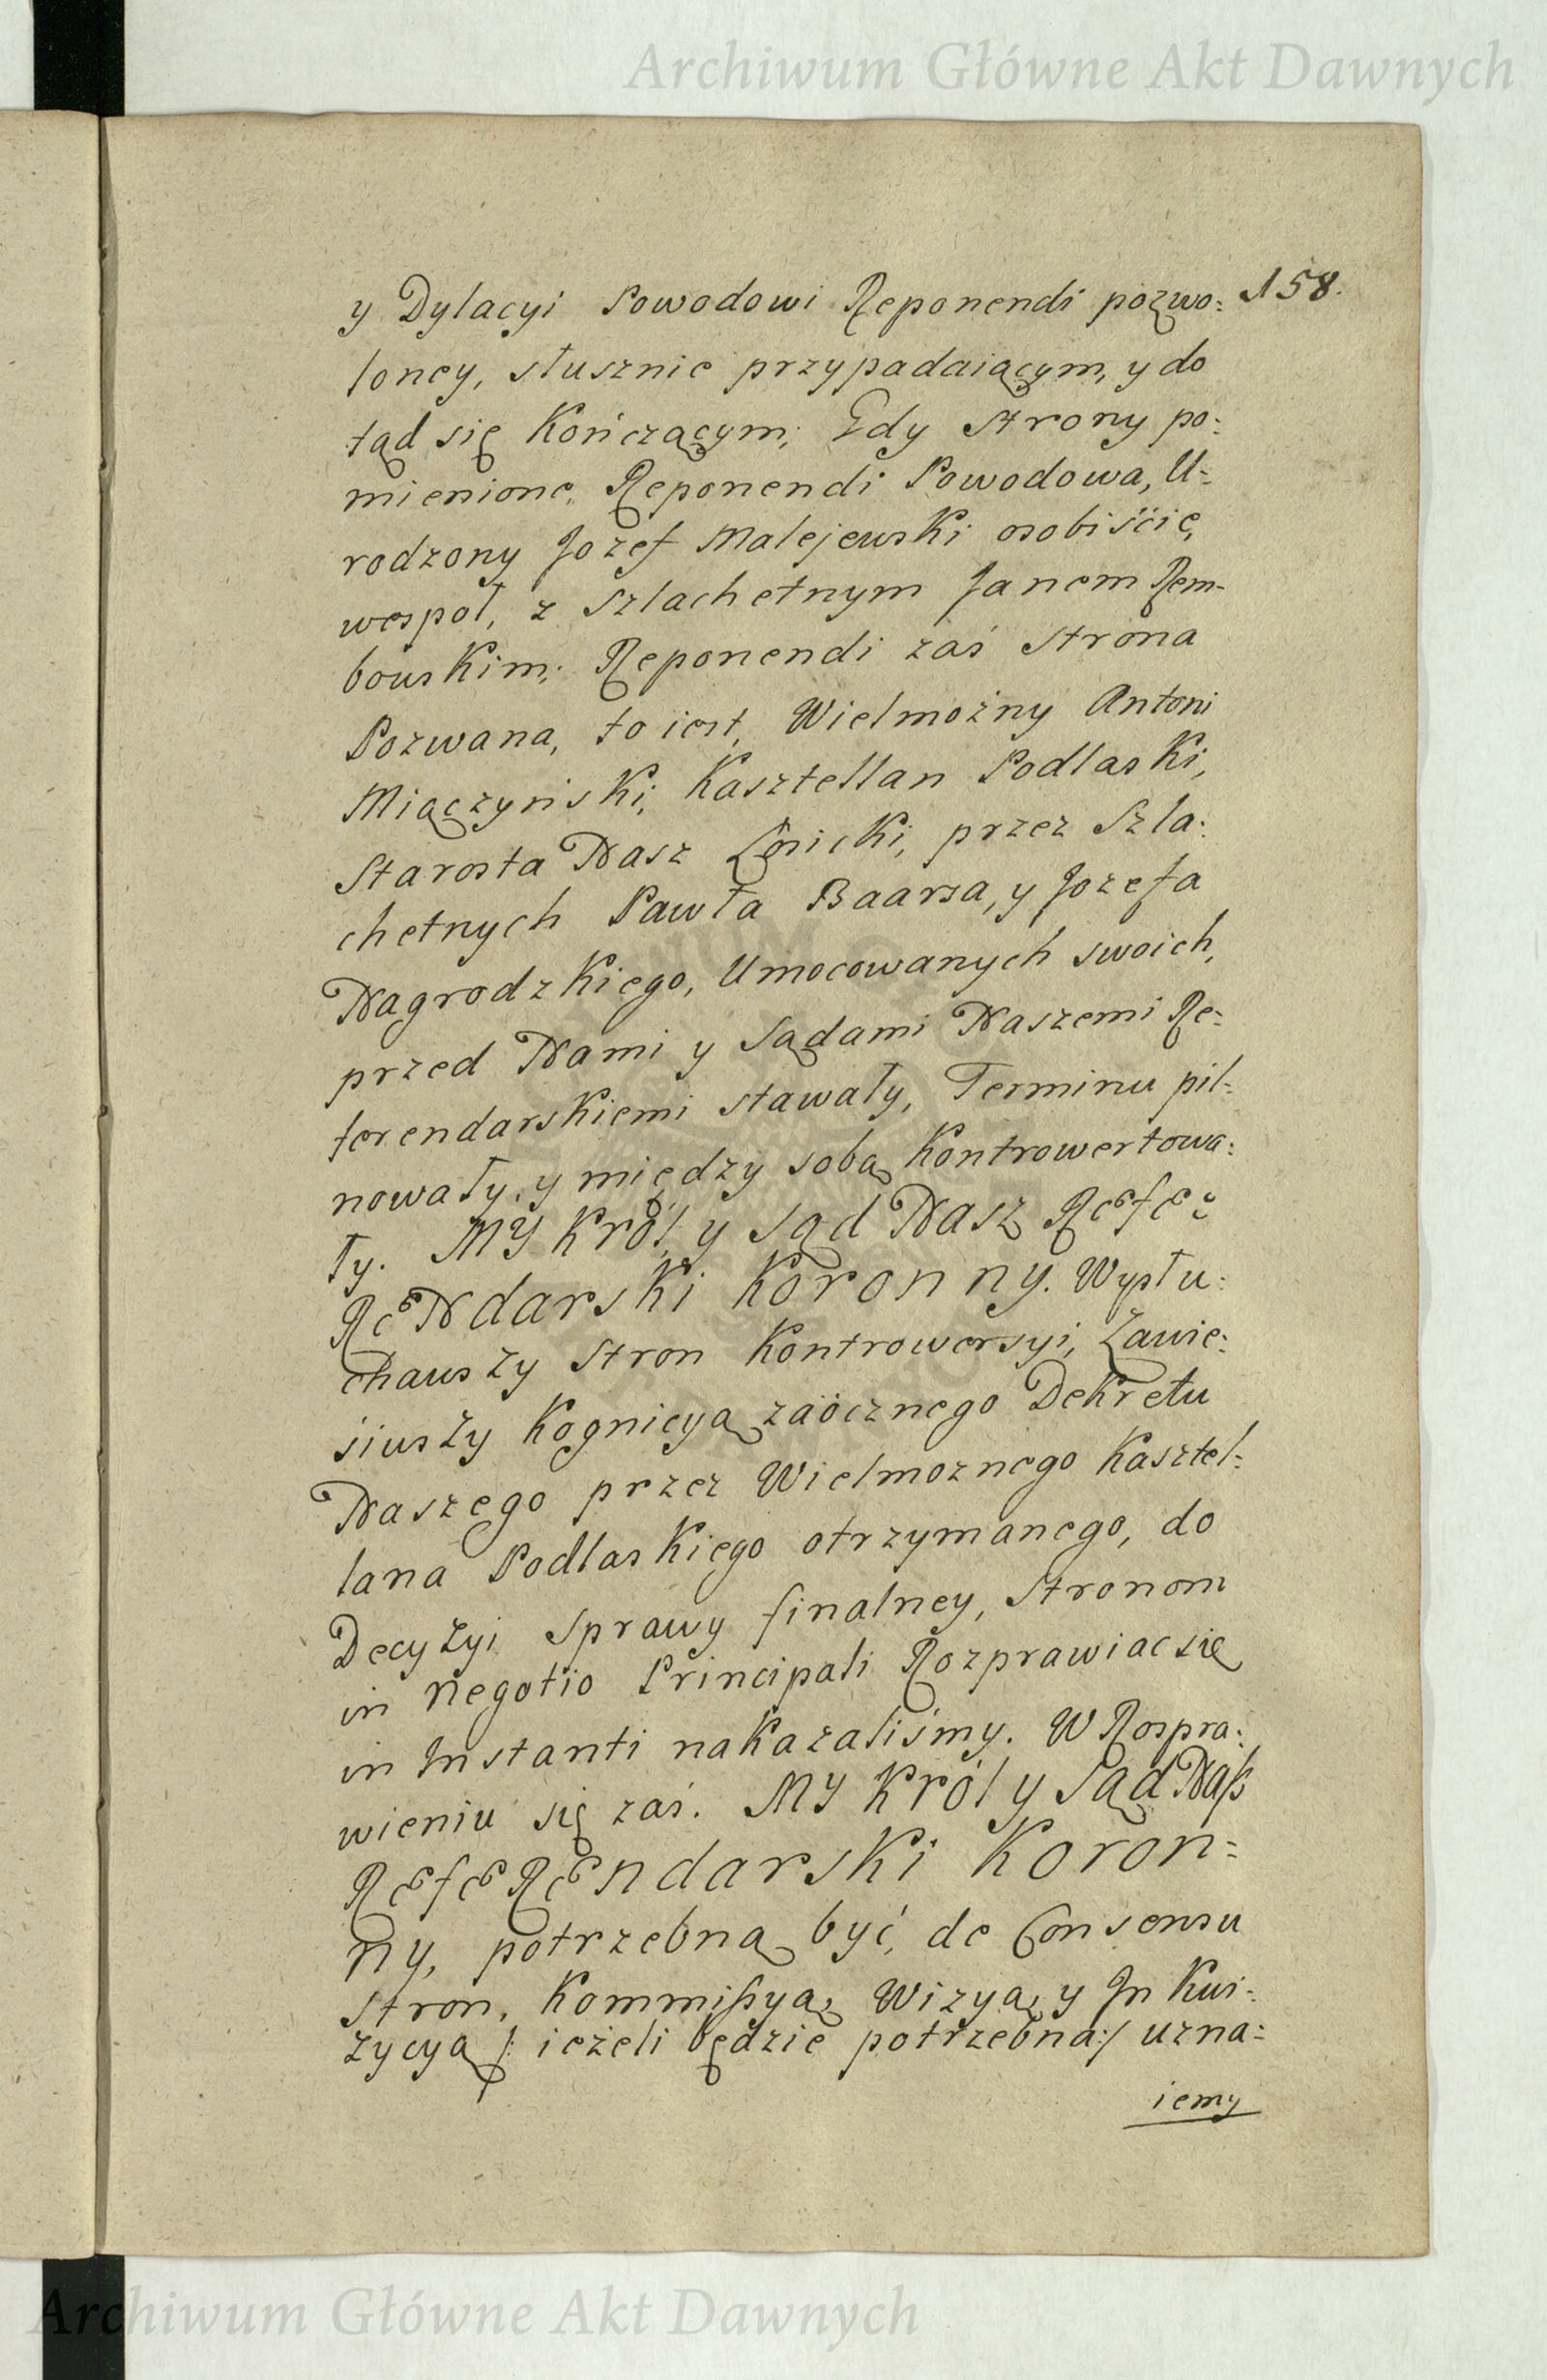 Archiwum Główne Akt Dawnych
158.
y Dylacyi Powodowi Reponendi pozwo:
loney, słusznie przypadaiącym, y do
tąd się Kończącym; Gdy Strony po:
mienione, Reponendi Powodowa, U-
rodzony Jozef Malejewski osobiście,
wespoł, z Szlachetnym Janem Rem-
bowskim; Reponendi zaś Strona
Pozwana, to iest, Wielmożny Antoni
Miączyński, Kasztellan Podlaski,
Starosta Nasz Łosicki, przez Szla:
chetnych Pawła Baarsa, y Jozefa
Nagrodzkiego, Umocowanych swoich,
przed Nami y Sądami Naszemi Re:
ferendarskiemi stawały, Terminu pil-
nowały, y między sobą Kontrowertowa:
ły. MY Król y Sąd Nasz Refe:
ReNdarski Koronny. Wysłu:
chawszy Stron Kontrowersyi, Zawie:
siwszy Kognicyą zaocznego Dekretu
Naszego przez Wielmoznego Kasztel:
lana Podlaskiego otrzymanego, do
Decyzyi Sprawy finalney, Stronom
in Negotio Principali Rozprawiac się
in Instanti nakazaliśmy. W Rospra:
wieniu się zaś. MY Król y Sąd Naß
RefeRendarski Koron:
ny, potrzebną być, de Consensu
Stron, Kommißyą, Wizyą, y Inkwi:
zycyą /: ieżeli będzie potrzebna :/ uzna:
iemy
Archiwum Główne Akt Dawnych